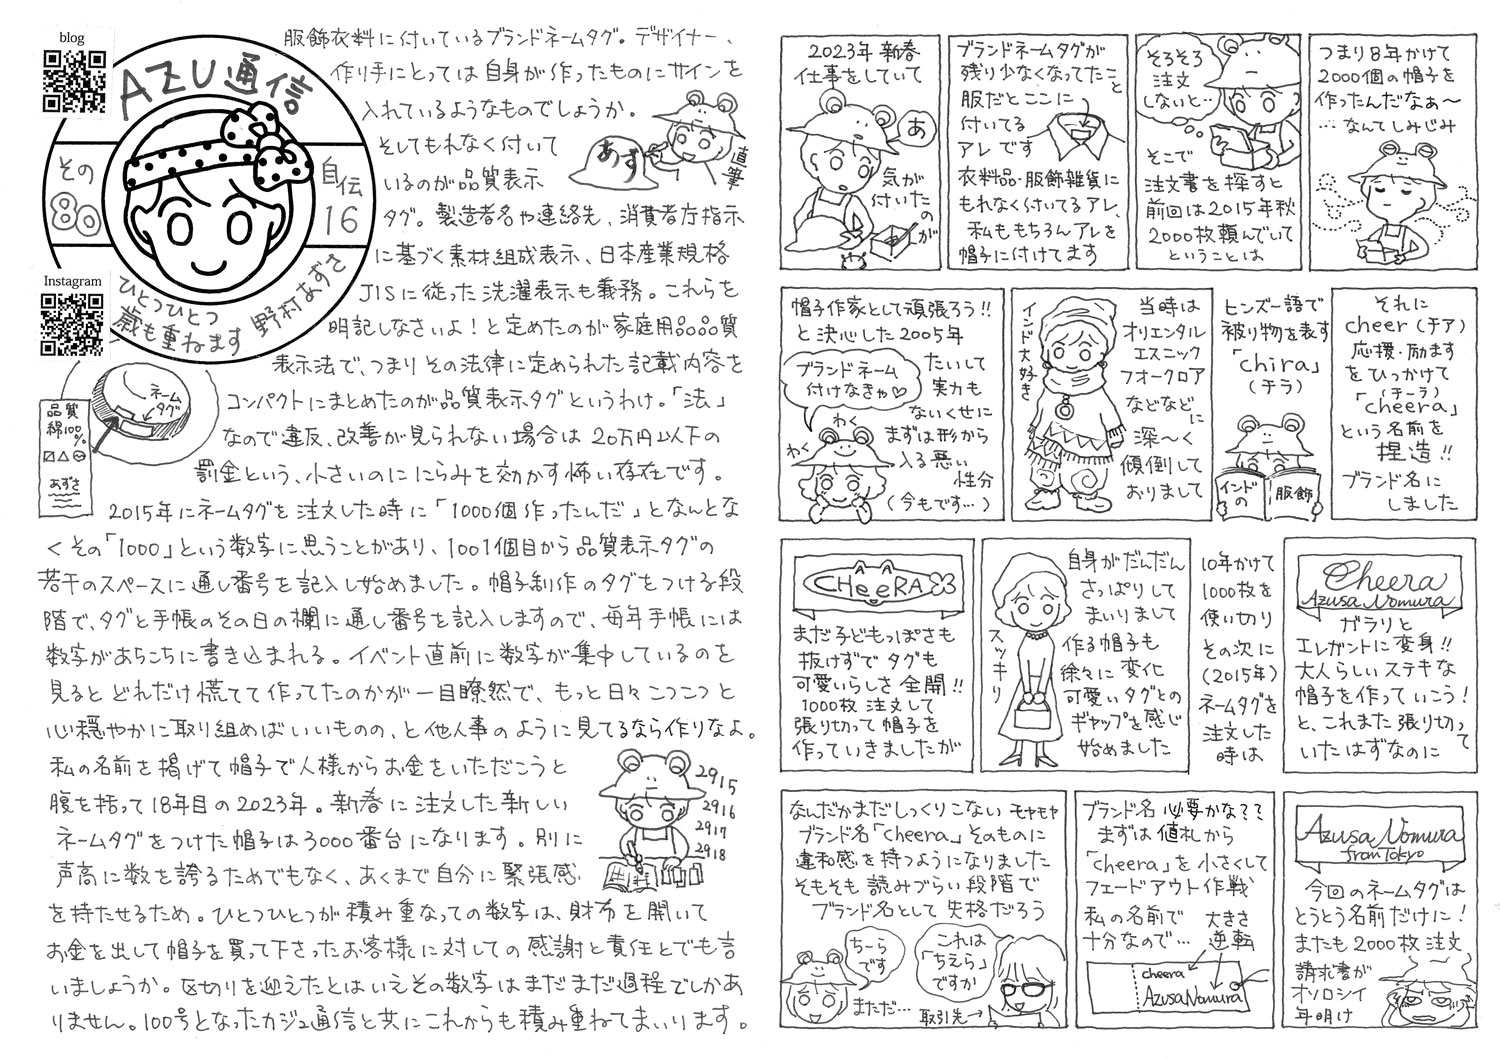 blog
AZU通信
その
80
自伝
16
Instagram
ひとつひとつ
歳も重ねます
野村あずさ
服飾衣料に付いているブランドネームタグ。デザイナー、
作り手にとっては自身が作ったものにサインを
入れているようなものでしょうか。
そしてもれなく付いて
いるのが品質表示
タグ。製造者名や連絡先、消費者庁指示
に基づく素材組成表示、日本産業規格
JISに従った洗濯表示も義務。これらを
明記しなさいよ!と定めたのが家庭用品品質
表示法で、つまりその法律に定められた記載内容を
コンパクトにまとめたのが品質表示タグというわけ。「法」
なので違反、改善が見られない場合は20万円以下の
罰金という、小さいのににらみを効かす怖い存在です。
2015年にネームタグを注文した時に「1000個作ったんだ」となんとな
くその「1000」という数字に思うことがあり、1001個目から品質表示タグの
若干のスペースに通し番号を記入し始めました。帽子制作のタグをつける段
階で、タグと手帳のその日の欄に通し番号を記入しますので、毎年手帳には
数字があちこちに書き込まれる。イベント直前に数字が集中しているのを
見るとどれだけ慌てて作ってたのかが一目瞭然で、もっと日々こつこつと
心穏やかに取り組めばいいものの、と他人事のように見てるなら作りなよ。
私の名前を掲げて帽子で人様からお金をいただこうと
腹を括って18年目の2023年。新春に注文した新しい
ネームタグをつけた帽子は3000番台になります。別に
声高に数を誇るためでもなく、あくまで自分に緊張感
を持たせるため。ひとつひとつが積み重なっての数字は、財布を開いて
お金を出して帽子を買って下さったお客様に対しての感謝と責任とでも言
いましょうか。区切りを迎えたとはいえその数字はまだまだ過程でしかあ
りません。100号となったカジュ通信と共にこれからも積み重ねてまいります。
あず
直筆
ネーム
タグ
品質
綿100%
あずさ
2915
2916
2917
2918
2023年新春
仕事をしていて
あ
気が
付いたの
が
ブランドネームタグが
残り少なくなってたこと
服だとここに
付いてる
アレです
衣料品・服飾雑貨に
もれなく付いてるアレ、
私ももちろんアレを
帽子に付けてます
そろそろ
注文
しないと…
そこで
注文書を探すと
前回は2015年秋
2000枚頼んでいて
ということは
つまり8年かけて
2000個の帽子を
作ったんだなぁ~
…なんてしみじみ
帽子作家として頑張ろう!!
と決心した2005年
ブランドネーム
付けなきゃ♡
わく
わく
たいして
実力も
ないくせに
まずは形から
入る悪い
性分
(今もです…)
インド大好き
当時は
オリエンタル
エスニック
フォークロア
などなど
に
深〜く
傾倒して
おりまして
ヒンズー語で
被り物を表す
「chira」
(チラ)
インドの
服飾
それに
cheer(チア)
応援・励ます
をひっかけて
(チーラ)
「cheera」
という名前を
捏造!!
ブランド名に
しました
CHeeRA
まだ子どもっぽさも
抜けずでタグも
可愛いらしさ全開!!
1000枚注文して
張り切って帽子を
作っていきましたが
スッキリ
自身がだんだん
さっぱりして
まいりまして
作る帽子も
徐々に変化
可愛いタグとの
ギャップを感じ
始めました
10年かけて
1000枚を
使い切り
その次に
(2015年)
ネームタグを
注文した
時は
Cheera
Azusa Nomura
ガラリと
エレガントに変身!!
大人らしいステキな
帽子を作っていこう!
と、これまた張り切って
いたはずなのに
なんだかまだしっくりこない モヤモヤ
ブランド名「cheera」そのものに
違和感を持つようになりました
そもそも読みづらい段階で
ブランド名として失格だろう
ちーら
です
これは
「ちえら」
ですか
まただ…
取引先→
ブランド名必要かな??
まずは値札から
「cheera」を小さくして
フェードアウト作戦
私の名前で
十分なので…
大きさ
逆転
cheera
Azusa Nomura
Azusa Nomura
from Tokyo
今回のネームタグは
とうとう名前だけに!
またも2000枚注文
請求書が
オソロシイ
年明け